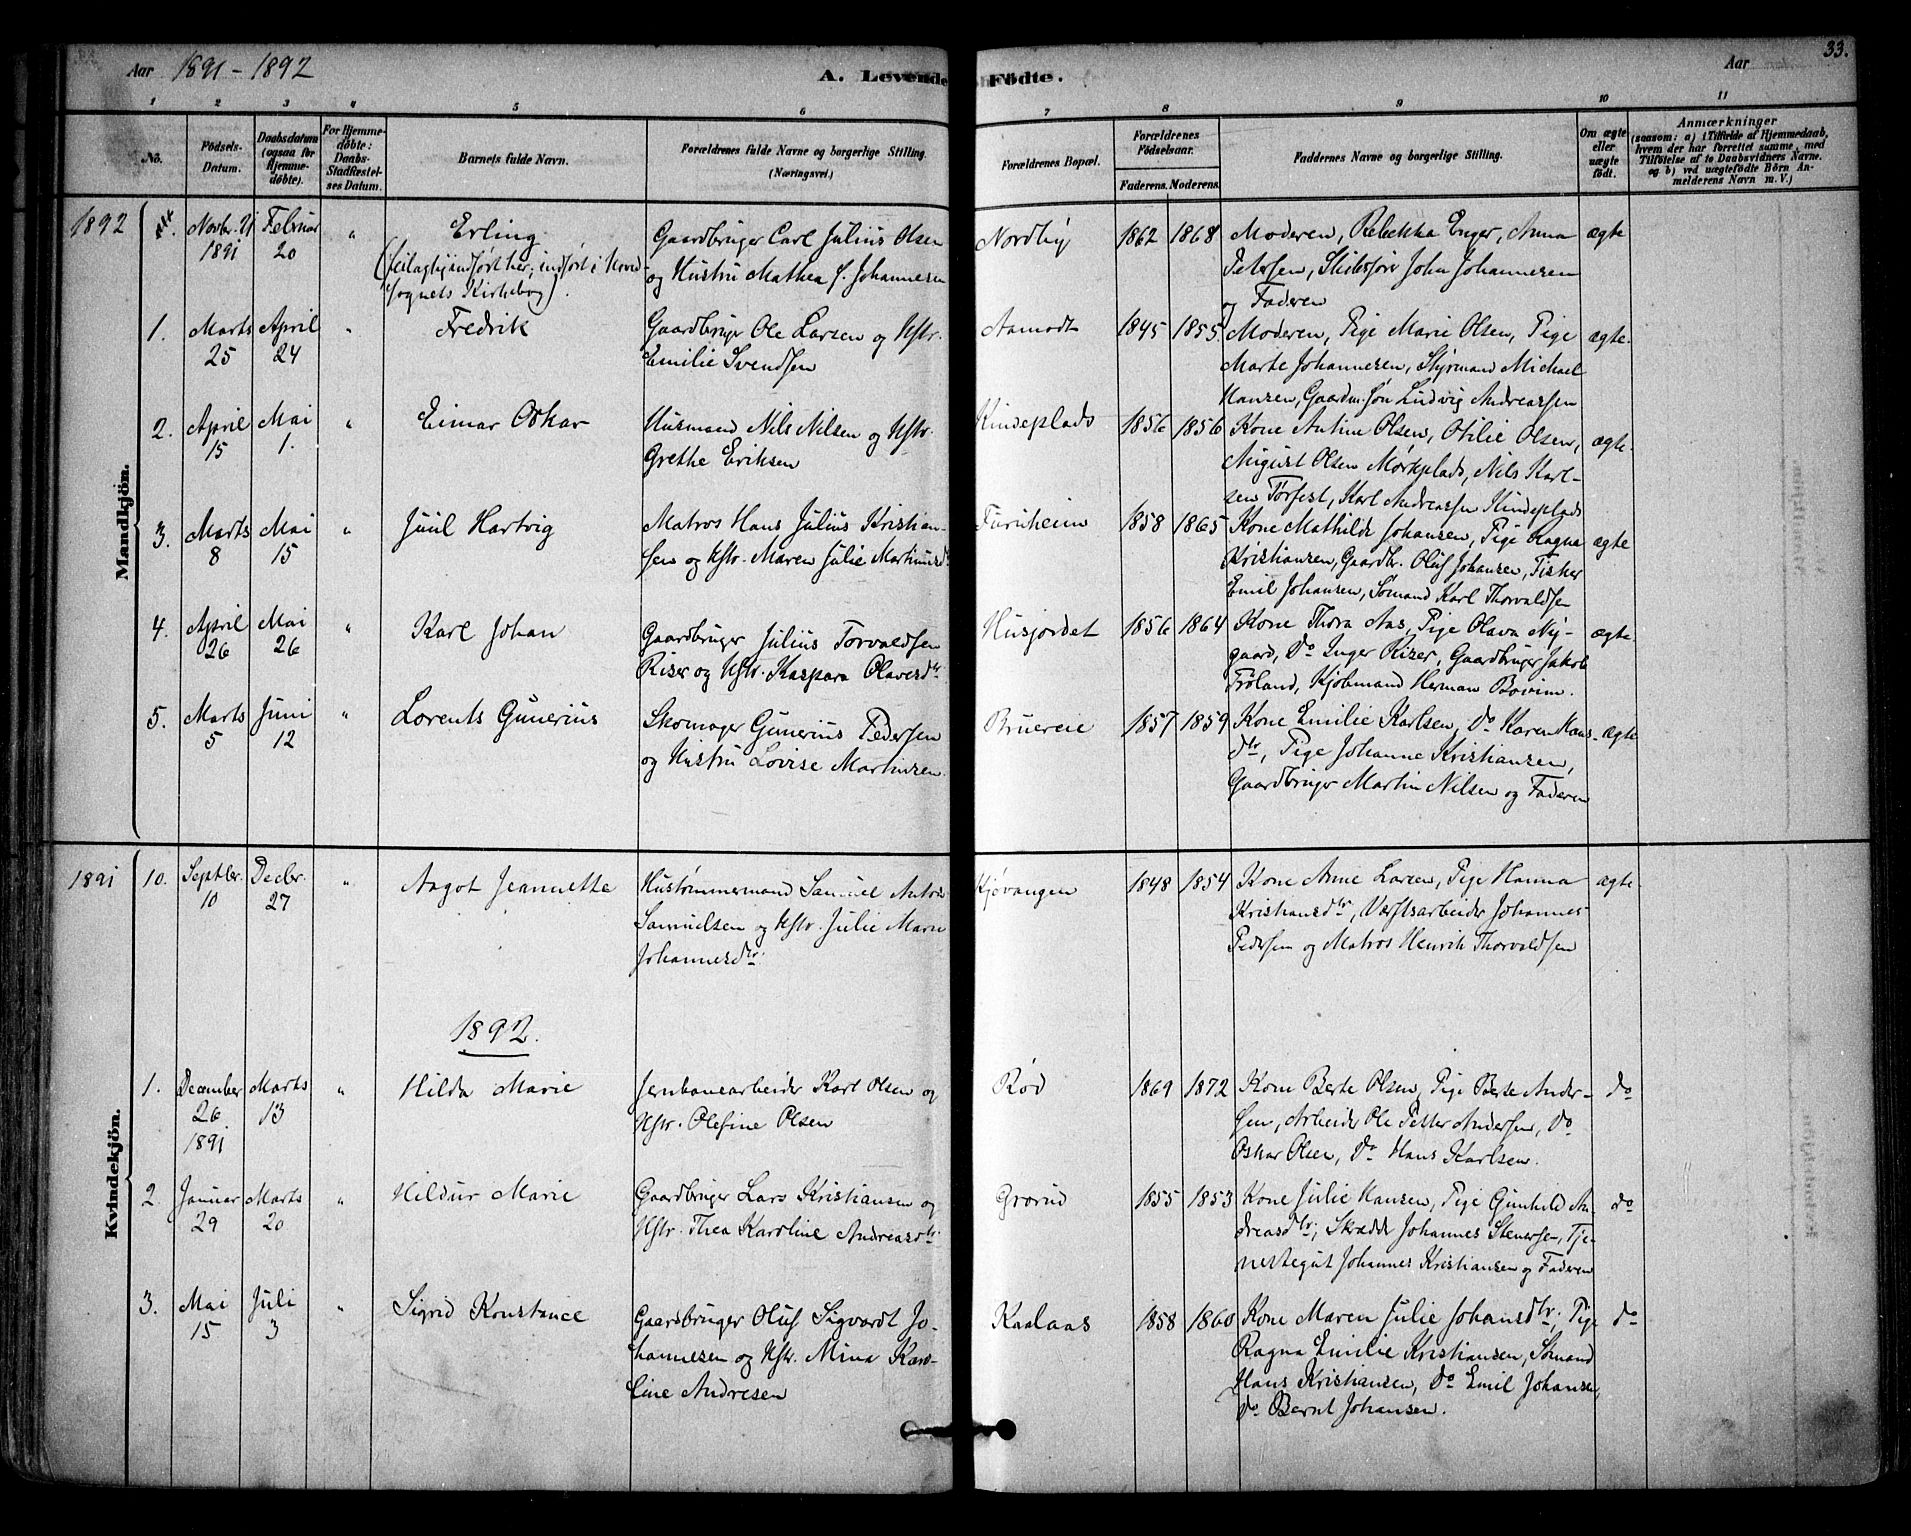 Aar 1891 - 1892
A. Levende Födte.
Aar
33.
1 2 3 4 5 6 7 8 9 10 11
No.
Födsels-Datum.
Daabsdatum (ogsaa for Hjemmedøbte).
For Hjemmedøbte: Daabs-Stadfæstelses Datum.
Barnets fulde Navn.
Forældrenes fulde Navne og borgerlige Stilling. (Næringsvei.)
Forældrenes Bopæl.
Forældrenes Födselsaar.
Faderens. Moderens.
Faddernes Navne og borgerlige Stilling.
Om ægte eller uægte födt.
Anmærkninger
(saasom: a) i Tilfælde af Hjemmedaab, hvem der har forrettet samme, med Tilföielse af to Daabsvidners Navne, og b) ved uægtefödte Börn Anmelderens Navn m. V.)
Mandkjön.
1892
Novbr. 21 1891
Februar 20
"
Erling
(feilagtig indført her, indført i Hoved-
sognets Kirkebog).
Gaardbruger Carl Julius Olsen
og Hustru Mathea f. Johannesen
Nordby
1862 1868
Moderen, Rebekka Enger, Anna
Petersen, Skibsfører John Johannesen
og Faderen
ægte
1. Marts 25
April 24
"
Fredrik
Gaardbruger Ole Larsen og Hstr.
Emilie Svendsen
Aamodt
1845 1855
Moderen, Pige Marie Olsen, Pige
Marte Johannesen, Styrmand Michael
Hansen, Gaardm. søn Ludvig Andreassen
ægte.
2. April 15
Mai 1.
"
Eimar Oskar
Husmand Nils Nilsen og Hstr.
Grethe Eriksen
1856 1856
Kone Antine Olsen, Otilie Olsen,
August Olsen Mørkeplads, Nils Karl-
sen Torfest, Karl Andreassen
ægte.
3. Marts 8
Mai 15
"
Juul Hartvig
Matros Hans Julius Kristian-
sen og Hstr. Maren Julie Martinusd.
Furuheim
1858 1865
Kone Mathilde Johansen, Pige Ragna
Kristiansen, Gaardbr. Oluf Johansen, Fisker
Emil Johansen, Sømand Karl Thorvaldsen
ægte
4. April 26
Mai 26
"
Karl Johan
Gaardbruger Julius Torvaldsen
Riser og Hstr. Kaspara Olavesdtr
Husjordet
1856 1864
Kone Thora Aas, Pige Olava Ny-
gaard, Do Inger Riser, Gaardbruger Jakob
Frøland, Kjøbmand Herman Bovim.
ægte
5. Marts 5
Juni 12
"
Lorents Gunerius
Skomager Gunerius Pedersen
og Hustru Lovise Martinsen.
Bruereie
1857 1859
Kone Emilie Karlsen, Do Karen Hans-
dtr, Pige Johanne Kristiansen,
Gaardbruger Martin Nilsen og Faderen
ægte
Kvindekjön.
1891
10. Septbr. 10
Decbr. 27
"
Aagot Jeannette
Hustømmermand Samuel Anton
Samuelsen og Hstr. Julie Marie
Johannesdtr.
Kjøvangen
1848 1854
Kone Anne Larsen, Pige Hanna
Kristiansdtr, Værftsarbeider Johannes
Pedersen og Matros Henrik Thorvaldsen
ægte
1892.
1. December 26. 1891
Marts 13
"
Hilda Marie
Jernbanearbeider Karl Olsen og
Hstr. Olefine Olsen
Rød
1869 1872
Kone Berte Olsen, Pige Berte Ander-
sen, Arbeider Ole Petter Andersen, Do
Oskar Olsen, Do Hans Karlsen.
do
2 Januar 29
Marts 20
"
Hildur Marie
Gaardbruger Lars Kristiansen og
Hstr. Thea Karoline Andreasdtr.
Grorud
1855 1853
Kone Julie Hansen, Pige Gunhild An-
dreasdtr, Skrædder Johannes Stenersen, Tje-
nestegut Johannes Kristiansen og Faderen
do
3. Mai 15
Juli 3
"
Sigrid Konstance
Gaardbruger Oluf Sigvardt Jo-
hannesen og Hstr. Mina Karo-
line Andresen
Kaalaas
1858 1860
Kone Maren Julie Johansdtr, Pige
Ragna Emilie Kristiansen, Sømand
Hans Kristiansen, Do Emil Johansen,
Do Bernt Johansen.
do